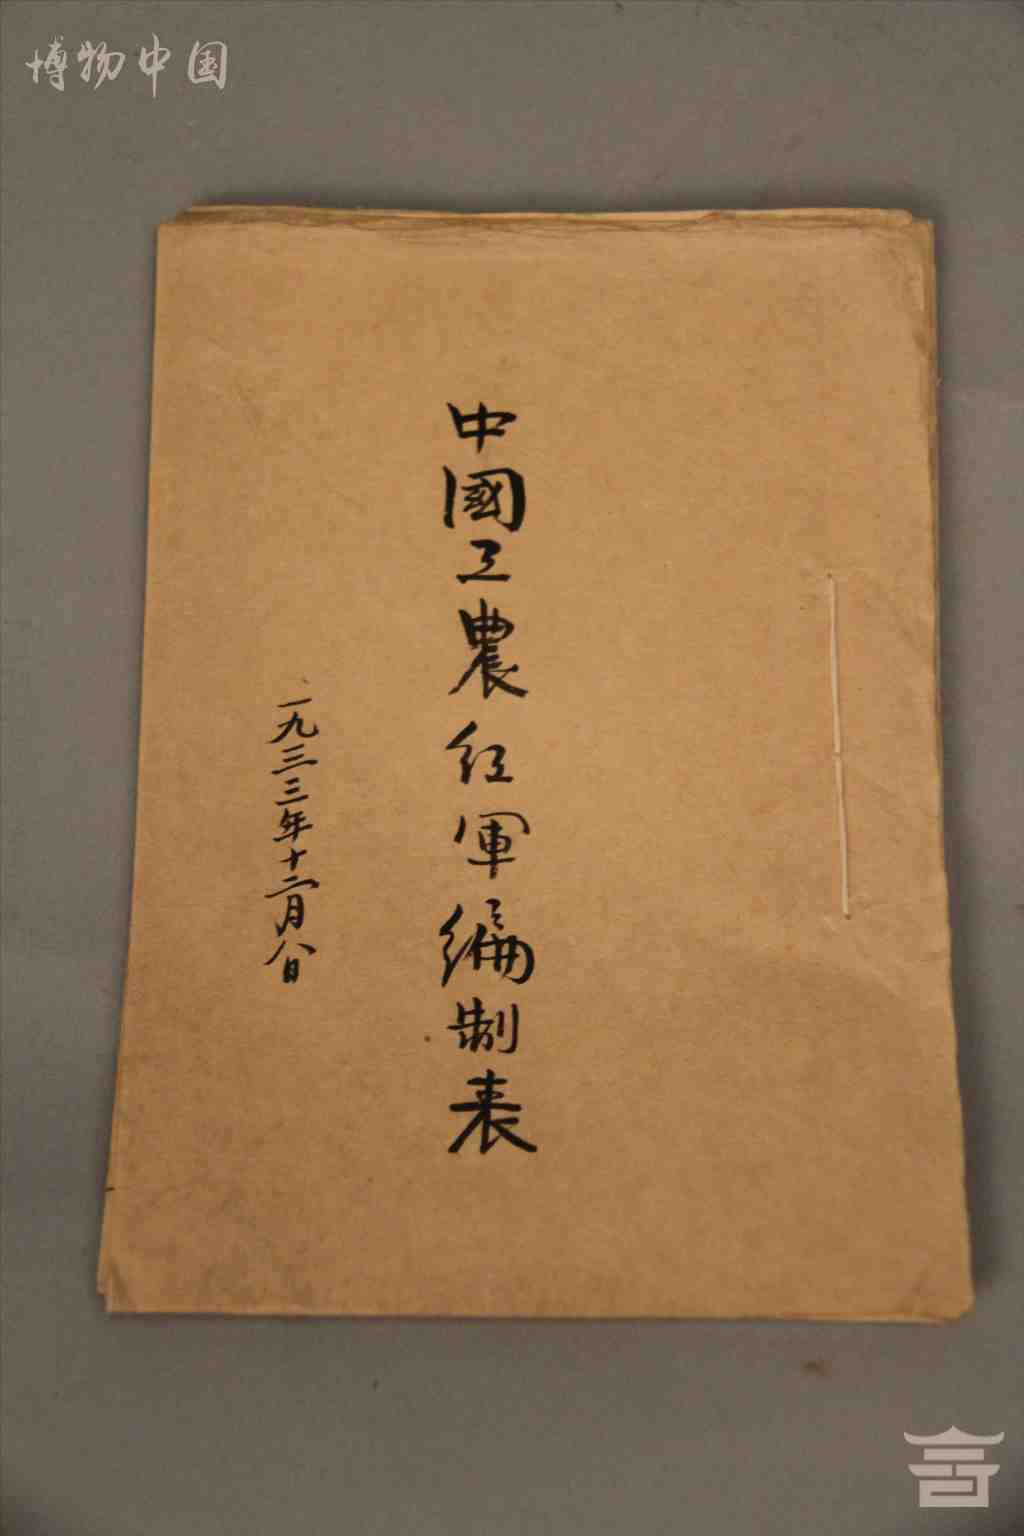 博物中国
中國工農红軍编制表
一九三三年十二月八日